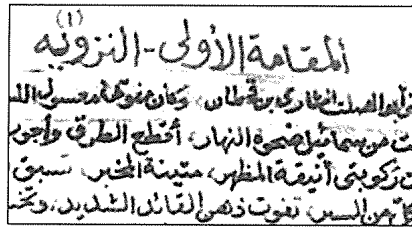 (١)
المقامة الأولى - النزوية
أبو الصلت الطاري بن قحطان، وكان معسول
من سمائل ضحوة النهار، أقطع الطرق وأجو
ركوبتي أنيقة المظهر، متينة المخبر، تسبق
من السير، تفوت ذهن القائد الشديد،